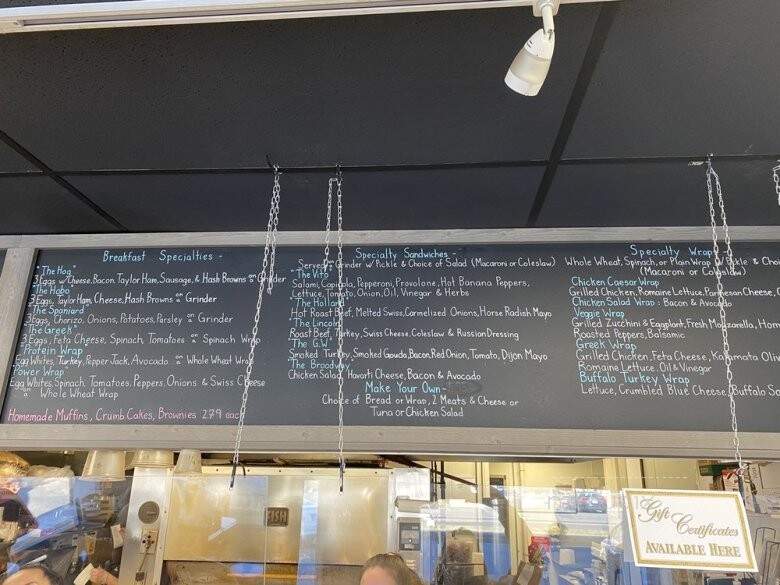 Breakfast Specialties -
"The Hog"
3 Eggs w/Cheese, Bacon, Taylor Ham, Sausage, & Hash Browns on a Grinder
"The Hobo"
3 Eggs, Taylor Ham, Cheese, Hash Browns on a Grinder
"The Spaniard"
3 Eggs, Chorizo, Onions, Potatoes, Parsley on a Grinder
"The Greek"
3 Eggs, Feta Cheese, Spinach, Tomatoes on a Spinach Wrap
"Protein Wrap"
Egg Whites, Turkey, Pepper Jack, Avocado on a Whole Wheat Wrap
"Power Wrap"
Egg Whites, Spinach, Tomatoes, Peppers, Onions & Swiss Cheese
on a Whole Wheat Wrap
Homemade Muffins, Crumb Cakes, Brownies 2.79 each
Specialty Sandwiches -
Served on Grinder w/ Pickle & Choice of Salad (Macaroni or Coleslaw)
"The Vito"
Salami, Capicola, Pepperoni, Provolone, Hot Banana Peppers,
Lettuce, Tomato, Onion, Oil, Vinegar & Herbs
"The Holland"
Hot Roast Beef, Melted Swiss, Carmelized Onions, Horse Radish Mayo
"The Lincoln"
Roast Beef, Turkey, Swiss Cheese, Coleslaw & Russian Dressing
"The G.W."
Smoked Turkey, Smoked Gowda, Bacon, Red Onion, Tomato, Dijon Mayo
"The Broadway"
Chicken Salad, Havarti Cheese, Bacon & Avocado
Make Your Own -
Choice of Bread or Wrap, 2 Meats & Cheese or
Tuna or Chicken Salad
Specialty Wrap
Whole Wheat, Spinach, or Plain Wrap w/ Pickle & Choi
(Macaroni or Coleslaw)
Chicken Caesar Wrap
Grilled Chicken, Romaine Lettuce, Parmesan Cheese, C
Chicken Salad Wrap: Bacon & Avocado
Veggie Wrap
Grilled Zucchini & Eggplant, Fresh Mozzarella, Hom
Roasted Peppers, Balsamic
Greek Wrap
Grilled Chicken, Feta Cheese, Kalamata Oliv
Romaine Lettuce, Oil & Vinegar
Buffalo Turkey Wrap
Lettuce, Crumbled Blue Cheese, Buffalo Sa
Gift Certificates
AVAILABLE HERE